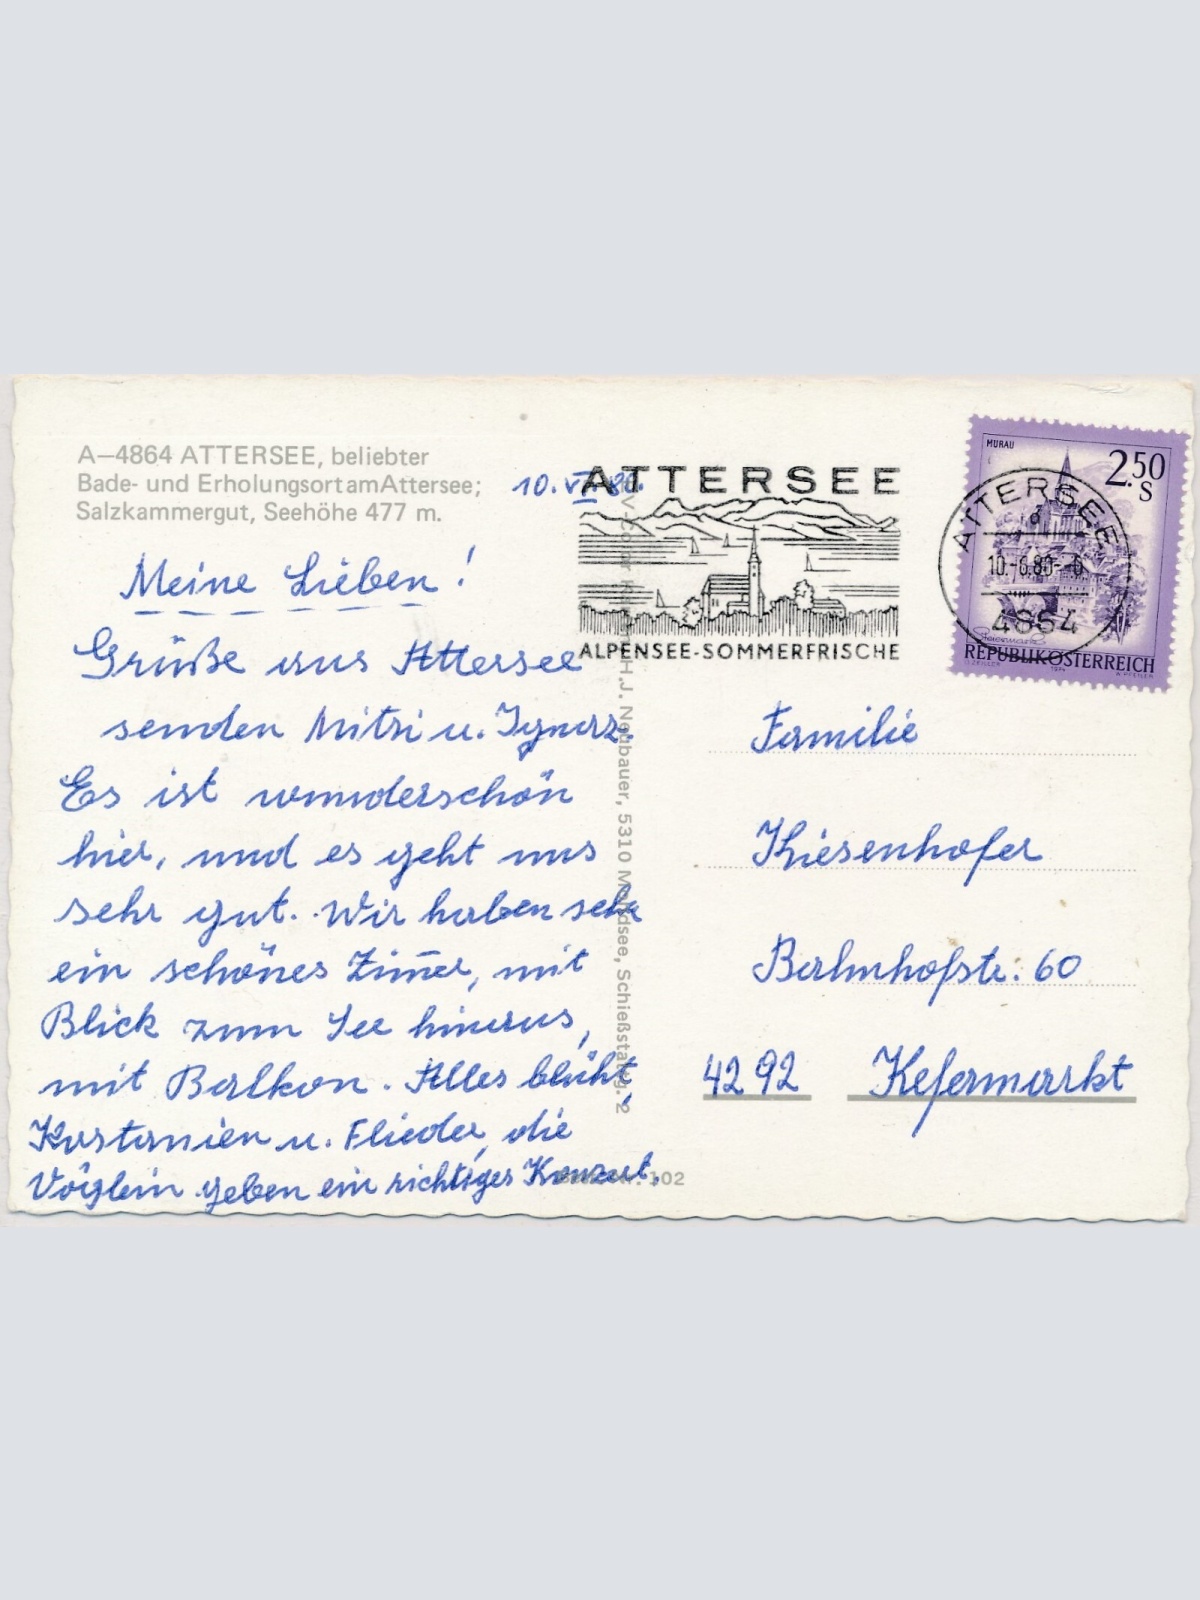 A—4864 ATTERSEE, beliebter
Bade- und Erholungsort am Attersee;
Salzkammergut, Seehöhe 477 m.
10. VI. 80.
Meine Lieben!
Grüße aus Attersee
senden Mitzi u. Ignaz.
Es ist wunderschön
hier, und es geht uns
sehr gut. Wir haben sehr
ein schönes Zim̄er, mit
Blick zum See hinaus,
mit Balkon. Alles blüht,
Kastanien u. Flieder, die
Vöglein geben ein richtiges Konzert.
H.J. Neubauer, 5310 Mondsee, Schießstattg. 2
102
ATTERSEE
ALPENSEE-SOMMERFRISCHE
MURAU
2.50
S
Steiermark
REPUBLIK ÖSTERREICH
O. ZEILLER 1974 W. PFEILER
ATTERSEE
10.-6.80.-6
4864
Familie
Kiesenhofer
Bahnhofstr. 60
4292 Kefermarkt